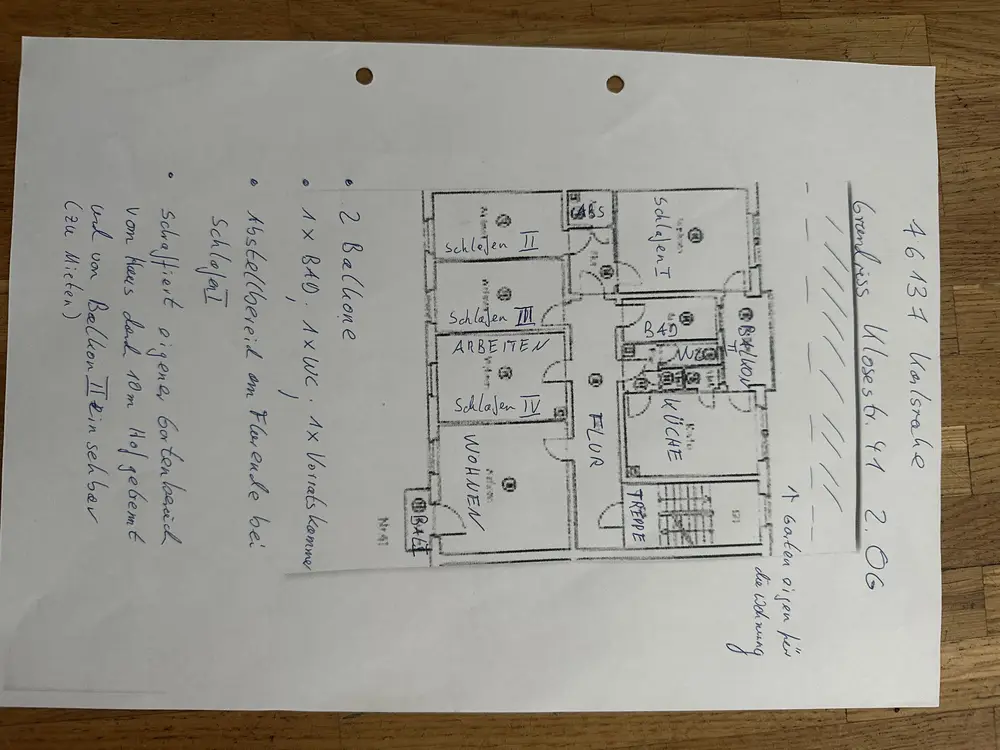 46137 Karlsruhe
Grundriss Klosestr. 41 2. OG
↑ Garten eigen für
die Wohnung
BALKON
II
Schlafen I
BAD
WC
KÜCHE
TREPPE
ABS
FLUR
Schlafen II
Schlafen III
ARBEITEN
Schlafen IV
WOHNEN
BALK
Nr. 41
• 2 Balkone
• 1 x BAD, 1 x WC, 1 x Vorratskammer
• Abstellbereich am Flurende bei
Schlafen I
• Schaffiert eigener Gartenbereich
vom Haus durch 10m Hof getrennt
und von Balkon II einsehbar
(zu Mieten)